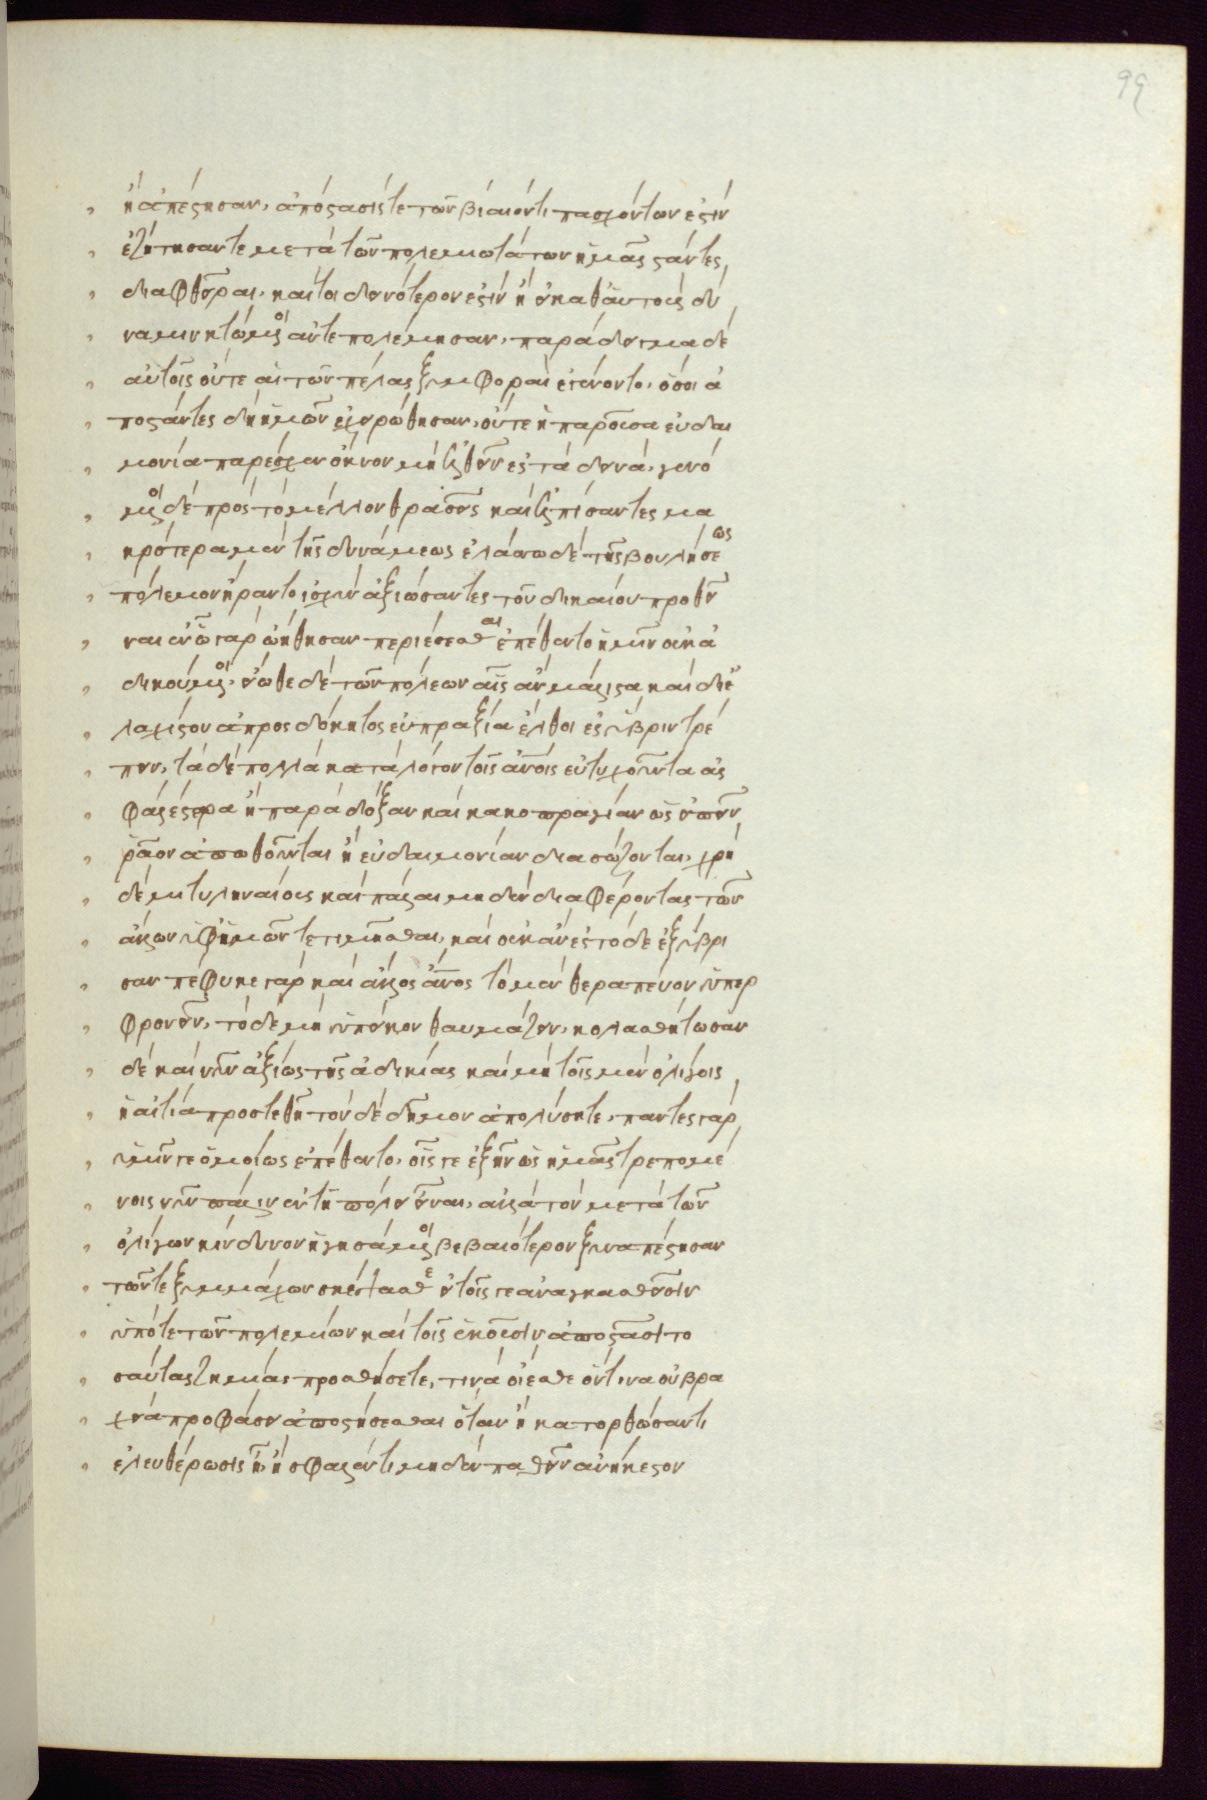 99
ἢ ἀπέστησαν, ἀπόστασις τε τῶν βίαιόν τι πασχόντων ἐστίν
ἐζήτησαν τε μετὰ τῶν πολεμιωτάτων ἡμᾶς στάντες
διαφθεῖραι, καίτοι δεινότερον ἐστὶν ἢ εἰ καθ᾽ αὑτοὺς δύ
ναμιν κτώμενοι ἀντεπολέμησαν, παράδειγμα δὲ
αὐτοῖς οὔτε αἱ τῶν πέλας ξυμφοραὶ ἐγένοντο, ὅσοι ἀ
ποστάντες ἤδη ἡμῶν ἐχειρώθησαν, οὔτε ἡ παροῦσα εὐδαι
μονία παρέσχεν ὄκνον μὴ ἐλθεῖν ἐς τὰ δεινά, γενό
μενοι δὲ πρὸς τὸ μέλλον θρασεῖς καὶ ἐλπίσαντες μα
κρότερα μὲν τῆς δυνάμεως ἐλάσσω δὲ τῆς βουλήσεως
πόλεμον ἤραντο ἰσχὺν ἀξιώσαντες τοῦ δικαίου προθεῖ
ναι ἐν ᾧ γὰρ ᾠήθησαν περιέσεσθαι ἐπέθεντο ἡμῖν οὐκ ἀ
δικούμενοι, εἴωθε δὲ τῶν πόλεων αἷς ἂν μάλιστα καὶ δι᾽ ἐ
λαχίστου ἀπροσδόκητος εὐπραξία ἔλθοι ἐς ὕβριν τρέ
πειν, τὰ δὲ πολλὰ κατὰ λόγον τοῖς ἀνοις εὐτυχοῦντα ἀσ
φαλέστερα ἢ παρὰ δόξαν καὶ κακοπραγίαν ὡς εἰπεῖν
ῥᾶον ἀπωθοῦνται ἢ εὐδαιμονίαν διασώζονται, χρῆν
δὲ μιτυληναίους καὶ πάλαι μηδὲν διαφέροντας τῶν
ἄλλων ὑφ᾽ ἡμῶν τετιμῆσθαι, καὶ οὐκ ἂν ἐς τόδε ἐξύβρι
σαν πέφυκε γὰρ καὶ ἄλλως ἄνος τὸ μὲν θεραπεῦον ὑπερ
φρονεῖν, τὸ δὲ μὴ ὑπεῖκον θαυμάζειν, κολασθήτωσαν
δὲ καὶ νῦν ἀξίως τῆς ἀδικίας καὶ μὴ τοῖς μὲν ὀλίγοις
ἡ αἰτία προστεθῇ τὸν δὲ δῆμον ἀπολύσητε, πάντες γὰρ
ὑμῖν τε ὁμοίως ἐπέθεντο, οἷς τε ἐξῆν ὡς ἡμᾶς τρεπομέ
νοις νῦν πάλιν ἐν τῇ πόλει εἶναι, ἀλλὰ τὸν μετὰ τῶν
ὀλίγων κίνδυνον ἡγησάμενοι βεβαιότερον ξυναπέστησαν
τῶν τε ξυμμάχων σκέψασθε εἰ τοῖς τε ἀναγκασθεῖσιν
ὑπό τε τῶν πολεμίων καὶ τοῖς ἑκοῦσιν ἀποστᾶσι το
σαύτας ζημίας προσθήσετε, τινὰ οἴεσθε ὅντινα οὐ βρα
χείᾳ προφάσει ἀποστήσεσθαι ὅταν ἢ κατορθώσαντι
ἐλευθέρωσις ἢ, ἢ σφαλέντι μηδὲν παθεῖν ἀνήκεστον